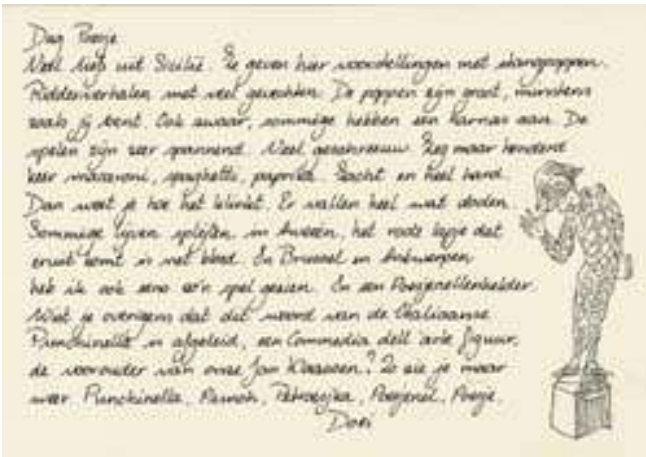 Dag Poesje
Veel liefs uit Sicilië. Ze geven hier voorstellingen met stangpoppen.
Ridderverhalen met veel gevechten. De poppen zijn groot, minstens
zoals jij bent. Ook zwaar, sommige hebben een harnas aan. De
spelen zijn zeer spannend. Veel geschreeuw. Zeg maar honderd
keer macaroni, spaghetti, paprika. Zacht en heel hard.
Dan weet je hoe het klinkt. Er vallen heel wat doden.
Sommige lijven splijten in tweeën, het rode lapje dat
eruit komt is net bloed. In Brussel en Antwerpen
heb ik ook eens zo'n spel gezien. In een Poesjenellenkelder.
Wist je overigens dat dit woord van de Italiaanse
Punchinella is afgeleid, een Commedia dell'arte figuur,
de voorouder van onze Jan Klaassen? Zo zie je maar
weer. Punchinella, Petroesjka, Poesjenel, Poesje.
Doei